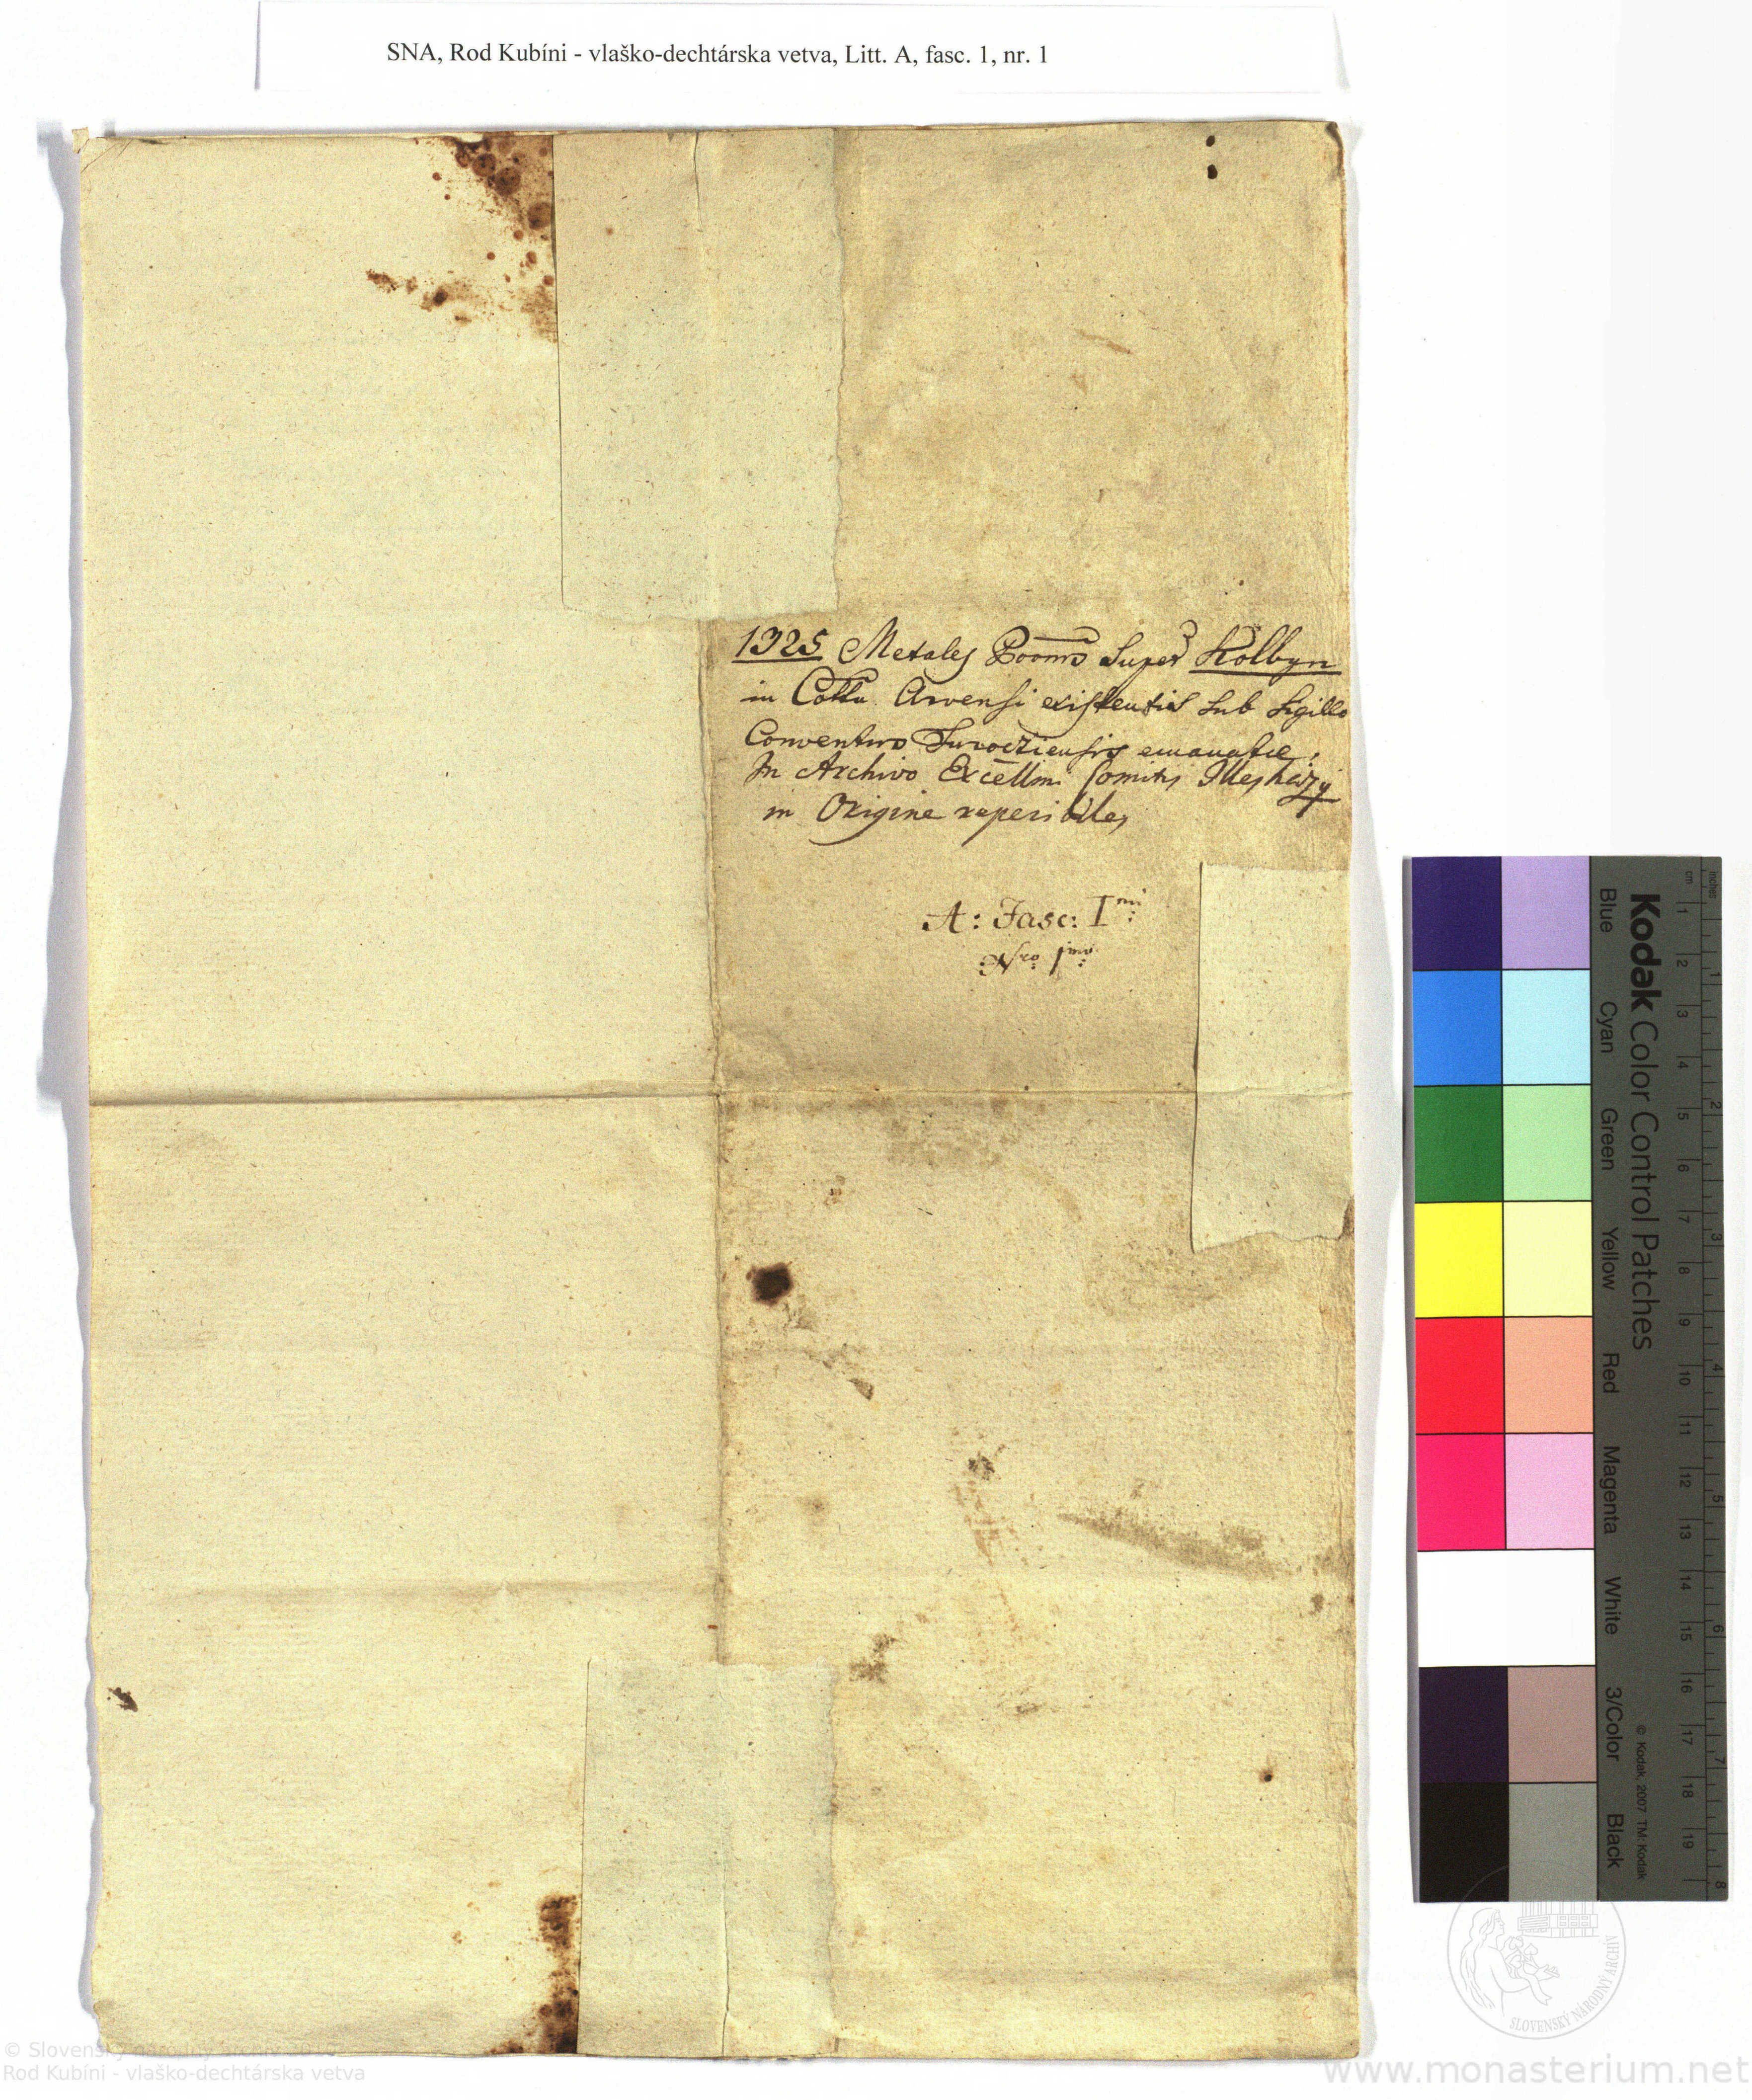 SNA, Rod Kubíni - vlaško-dechtárska vetva, Litt. A, fasc. 1, nr. 1
1325 Metales Poonis Super Kolbyn
in Cottu Arvensi existentis sub Sigillo
Conventus Turocziensis emanatae;
In Archivo Excellmi Comitis Illesházy
in Origine reperibiles
A: Fasc: I mi
Nro 1mo
Kodak Color Control Patches
Blue Cyan Green Yellow Red Magenta White 3/Color Black
© Kodak, 2007 TM: Kodak
cm 1 2 3 4 5 6 7 8 9 10 11 12 13 14 15 16 17 18 19
inches 1 2 3 4 5 6 7 8
SLOVENSKÝ NÁRODNÝ ARCHÍV
© Slovenský národný archív
Rod Kubíni - vlaško-dechtárska vetva
www.monasterium.net